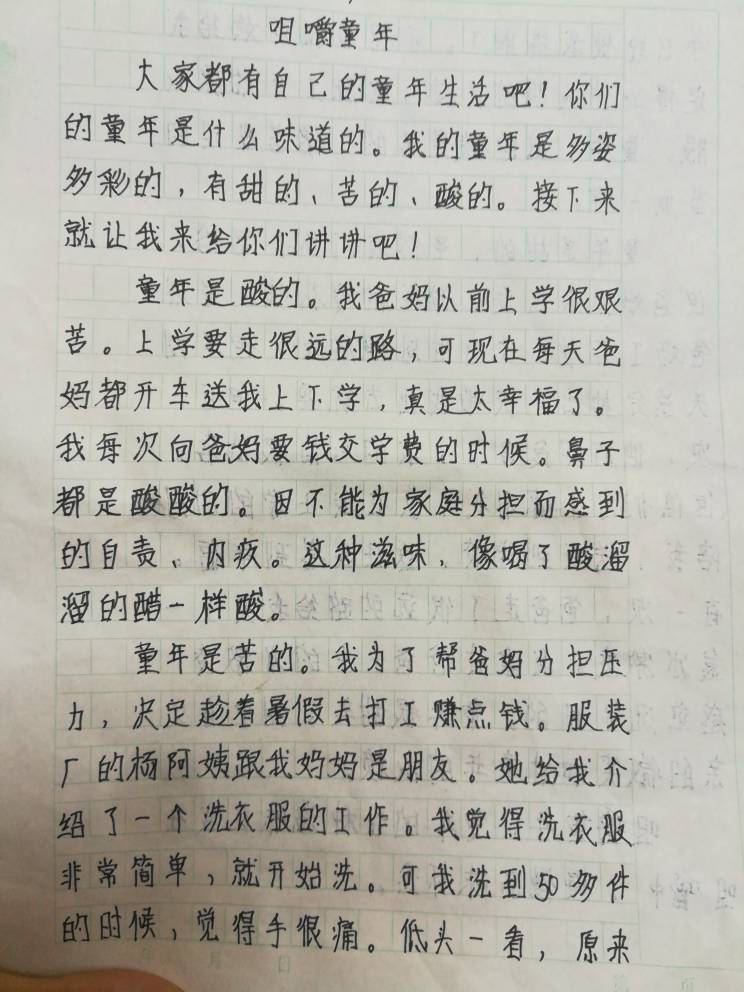 咀嚼童年
大家都有自己的童年生活吧！你们
的童年是什么味道的。我的童年是多姿
多彩的，有甜的、苦的、酸的。接下来
就让我来给你们讲讲吧！
童年是酸的。我爸妈以前上学很艰
苦。上学要走很远的路，可现在每天爸
妈都开车送我上下学，真是太幸福了。
我每次向爸妈要钱交学费的时候。鼻子
都是酸酸的。因不能为家庭分担而感到
的自责、内疚。这种滋味，像喝了酸溜
溜的醋一样酸。
童年是苦的。我为了帮爸妈分担压
力，决定趁着暑假去打工赚点钱。服装
厂的杨阿姨跟我妈妈是朋友。她给我介
绍了一个洗衣服的工作。我觉得洗衣服
非常简单，就开始洗。可我洗到50多件
的时候，觉得手很痛。低头一看，原来